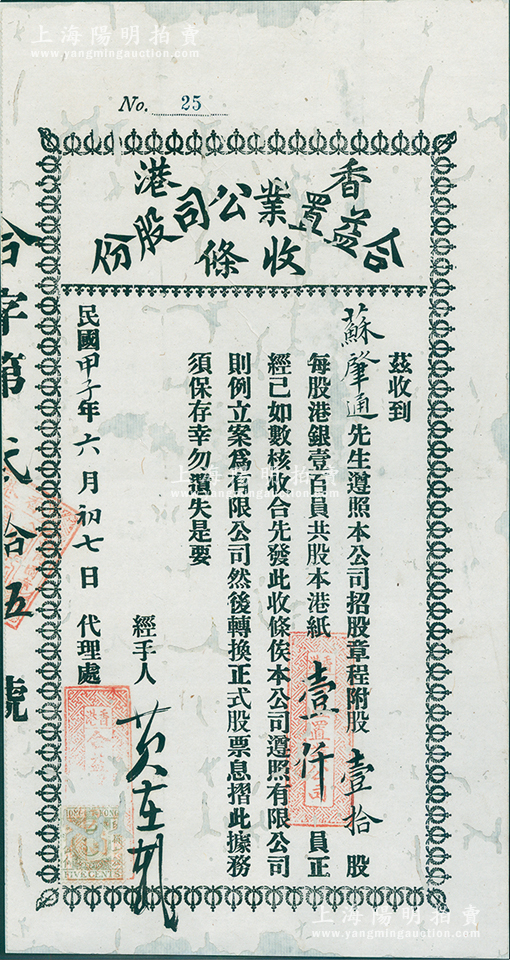 上海陽明拍賣
www.yangmingauction.com
No. 25
香港
合益置業公司股份
收條
茲收到
蘇肇通先生遵照本公司招股章程附股壹拾股
每股港銀壹百員共股本港紙壹仟員正
經已如數核收合先發此收條俟本公司遵照有限公司
則例立案爲有限公司然後轉換正式股票息摺此據務
須保存幸勿遺失是要
經手人
民國甲子年六月初七日 代理處
合字第弍拾五號
香港
合益
置
公司
HONG KONG
FIVE CENTS
上海陽明拍賣
www.yangmingauction.com
上海陽明拍賣
www.yangmingauction.com